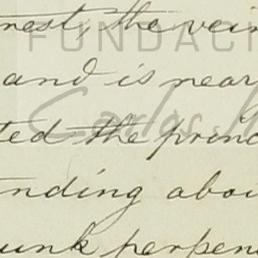 rest, the vein
FUNDACI
and is near
Carlos
ted the princ
nding abou
unk perpen